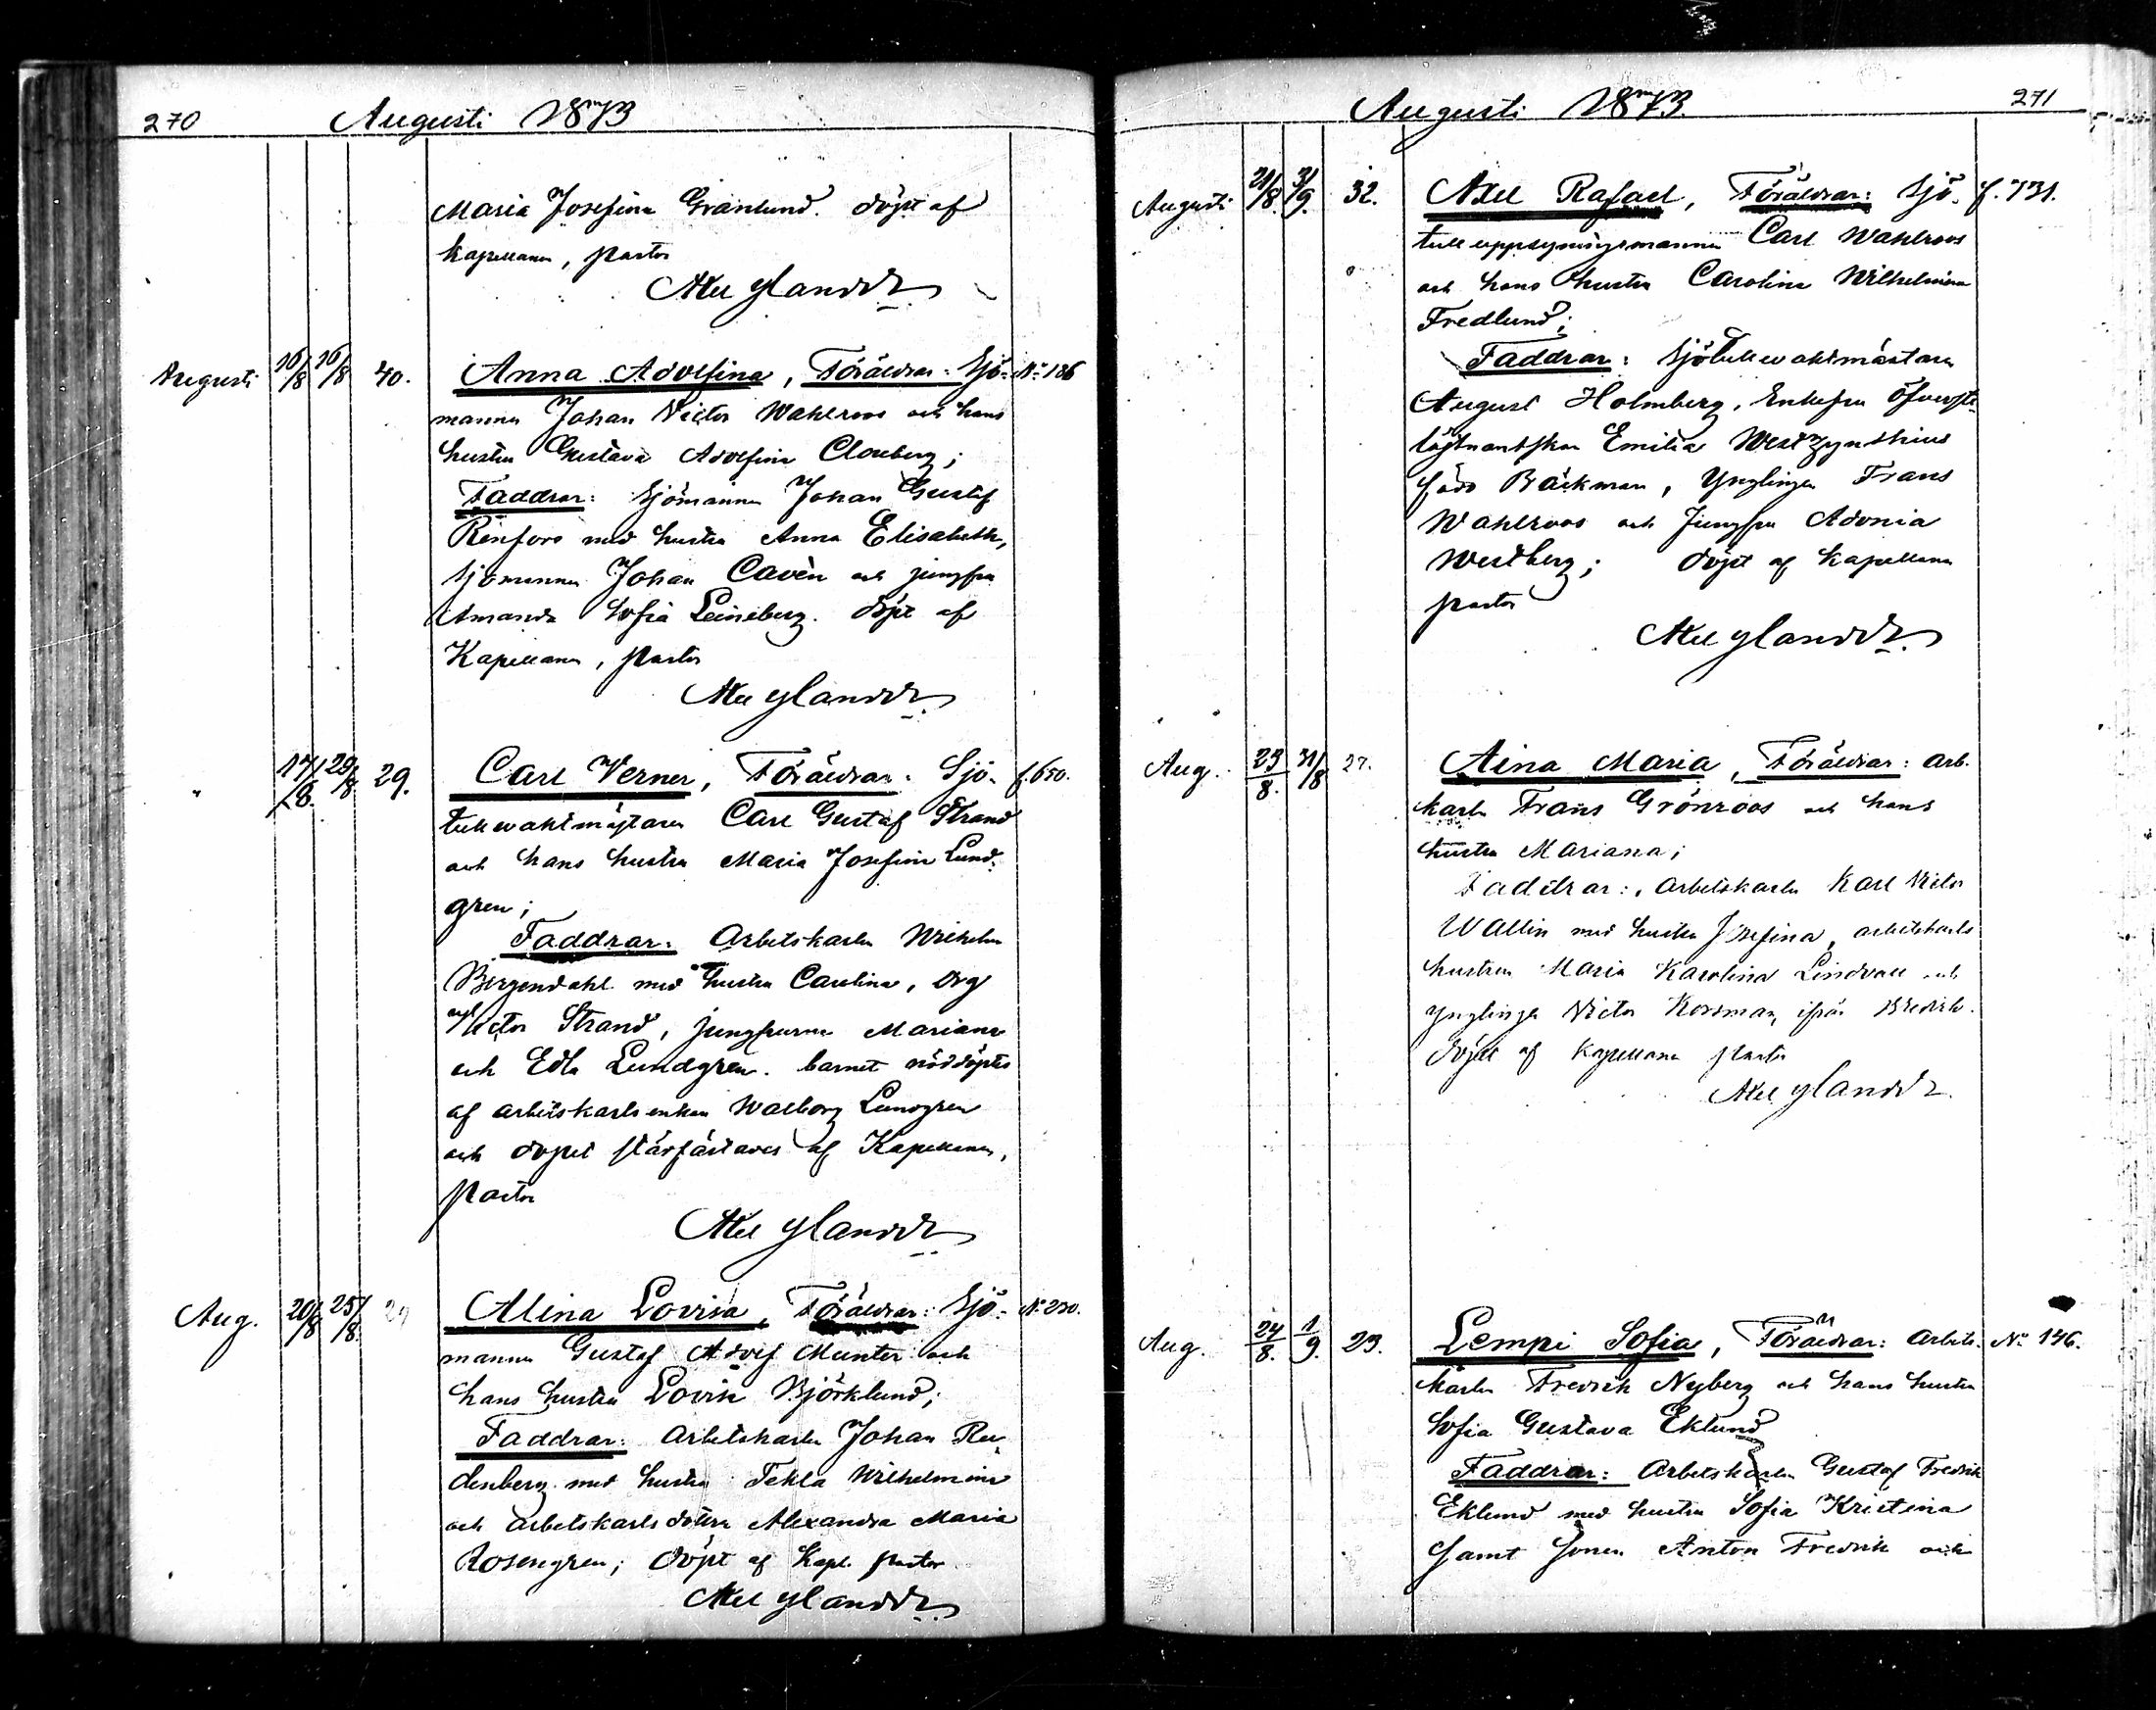 270 Augusti 1873
Maria Josefina Granlund. döpt af
kapellanen, pastor
Axel Ylander
Augusti 16/8 16/8 40. Anna Adolfina, Föräldrar: Sjö- No 186
mannen Johan Victor Wahlroos och hans
hustru Gustava Adolfina Clouberg;
Faddrar: Sjömannen Johan Gustaf
Renfors med hustru Anna Elisabeth,
sjömannen Johan Cavèn och jungfru
Amanda Sofia Leineberg. döpt af
Kapellanen, pastor
Axel Ylander.
" 17/8. 29/8 29. Carl Verner, Föräldrar: Sjö- f. 650.
tullvaktmästaren Carl Gustaf Strand
och hans hustru Maria Josefina Lund-
gren;
Faddrar: Arbetskarlen Wilhelm
Bergendahl med hustru Carolina,
Victor Strand, jungfrurna Mariana
och Edla Lundgren. barnet nöddöptes
af arbetskarlsenkan Walborg Lundgren
och dopet stadfästades af Kapellanen,
pastor
Axel Ylander
Aug. 20/8 25/8. 29 Alina Lovisa, Föräldrar: Sjö- No 230.
mannen Gustaf Adolf Munter och
hans hustru Lovisa Björklund;
Faddrar: Arbetskarlen Johan Ru-
denberg med hustru Tekla Wilhelmina
och arbetskarlsdottren Alexandra Maria
Rosengren; döpt af Kapl. pastor
Axel Ylander.
Augusti 1873. 271
Augusti 21/8. 3/9. 32. Axel Rafael, Föräldrar: Sjö- f. 731.
tulluppsyningsmannen Carl Wahlroos
och hans hustru Carolina Wilhelmina
Fredlund;
Faddrar: Sjötullvaktmästaren
August Holmberg, Enkefru Öfverste-
löjtnantskan Emilia Westzynthius
född Bäckman, Ynglingen Frans
Wahlroos och Jungfru Adonia
Westberg; döpt af Kapellanen
pastor
Axel Ylander.
Aug. 23/8. 31/8 27. Aina Maria, Föräldrar: Arb.
karlen Frans Grönroos och hans
hustru Mariana;
Faddrar: Arbetskarlen Karl Victor
Wallin med hustru Josefina, arbetskarls
hustrun Maria Karolina Lindvall och
ynglingen Victor Korsman, ifrån
döpt af Kapellanen pastor
Axel Ylander.
Aug. 24/8. 1/9. 23. Lempi Sofia, Föräldrar: Arbets- No 146.
karlen Fredrik Nyberg och hans hustru
Sofia Gustava Eklund
Faddrar: Arbetskarlen Gustaf Fredrik
Eklund med hustru Sofia Kristina
samt sonen Anton Fredrik och